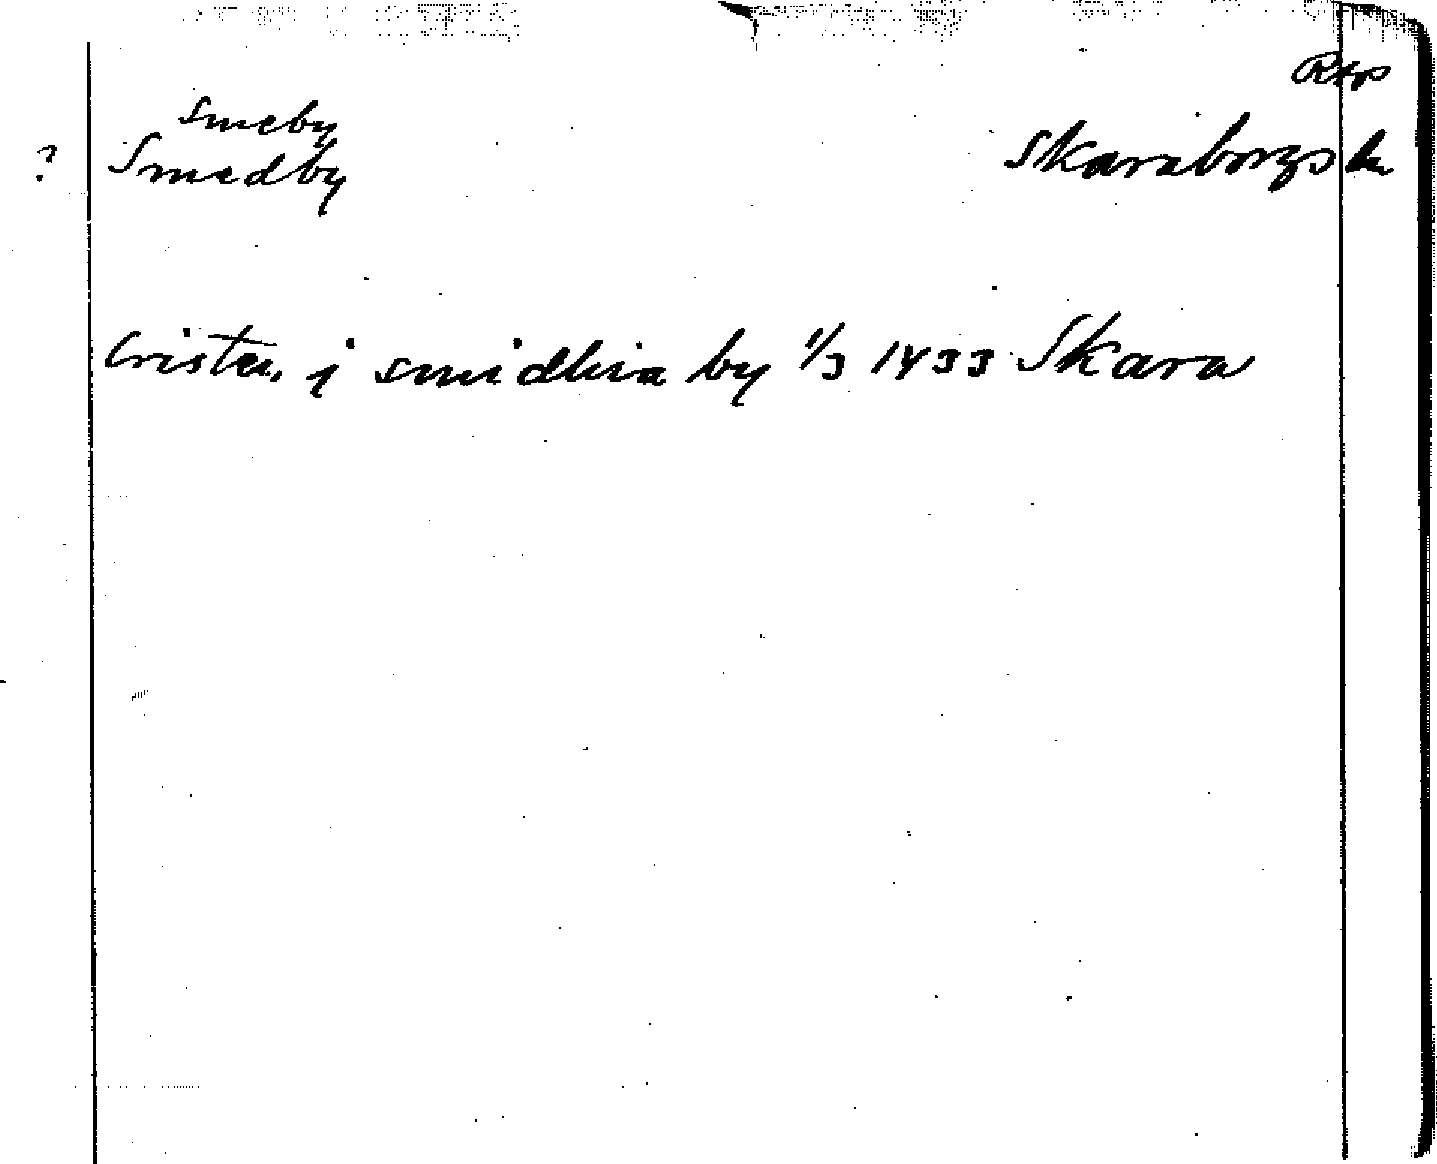 Rep
Smeby
? Smedby Skaraborgs l.
Cristen i smidhia by 1/3 1433 Skara